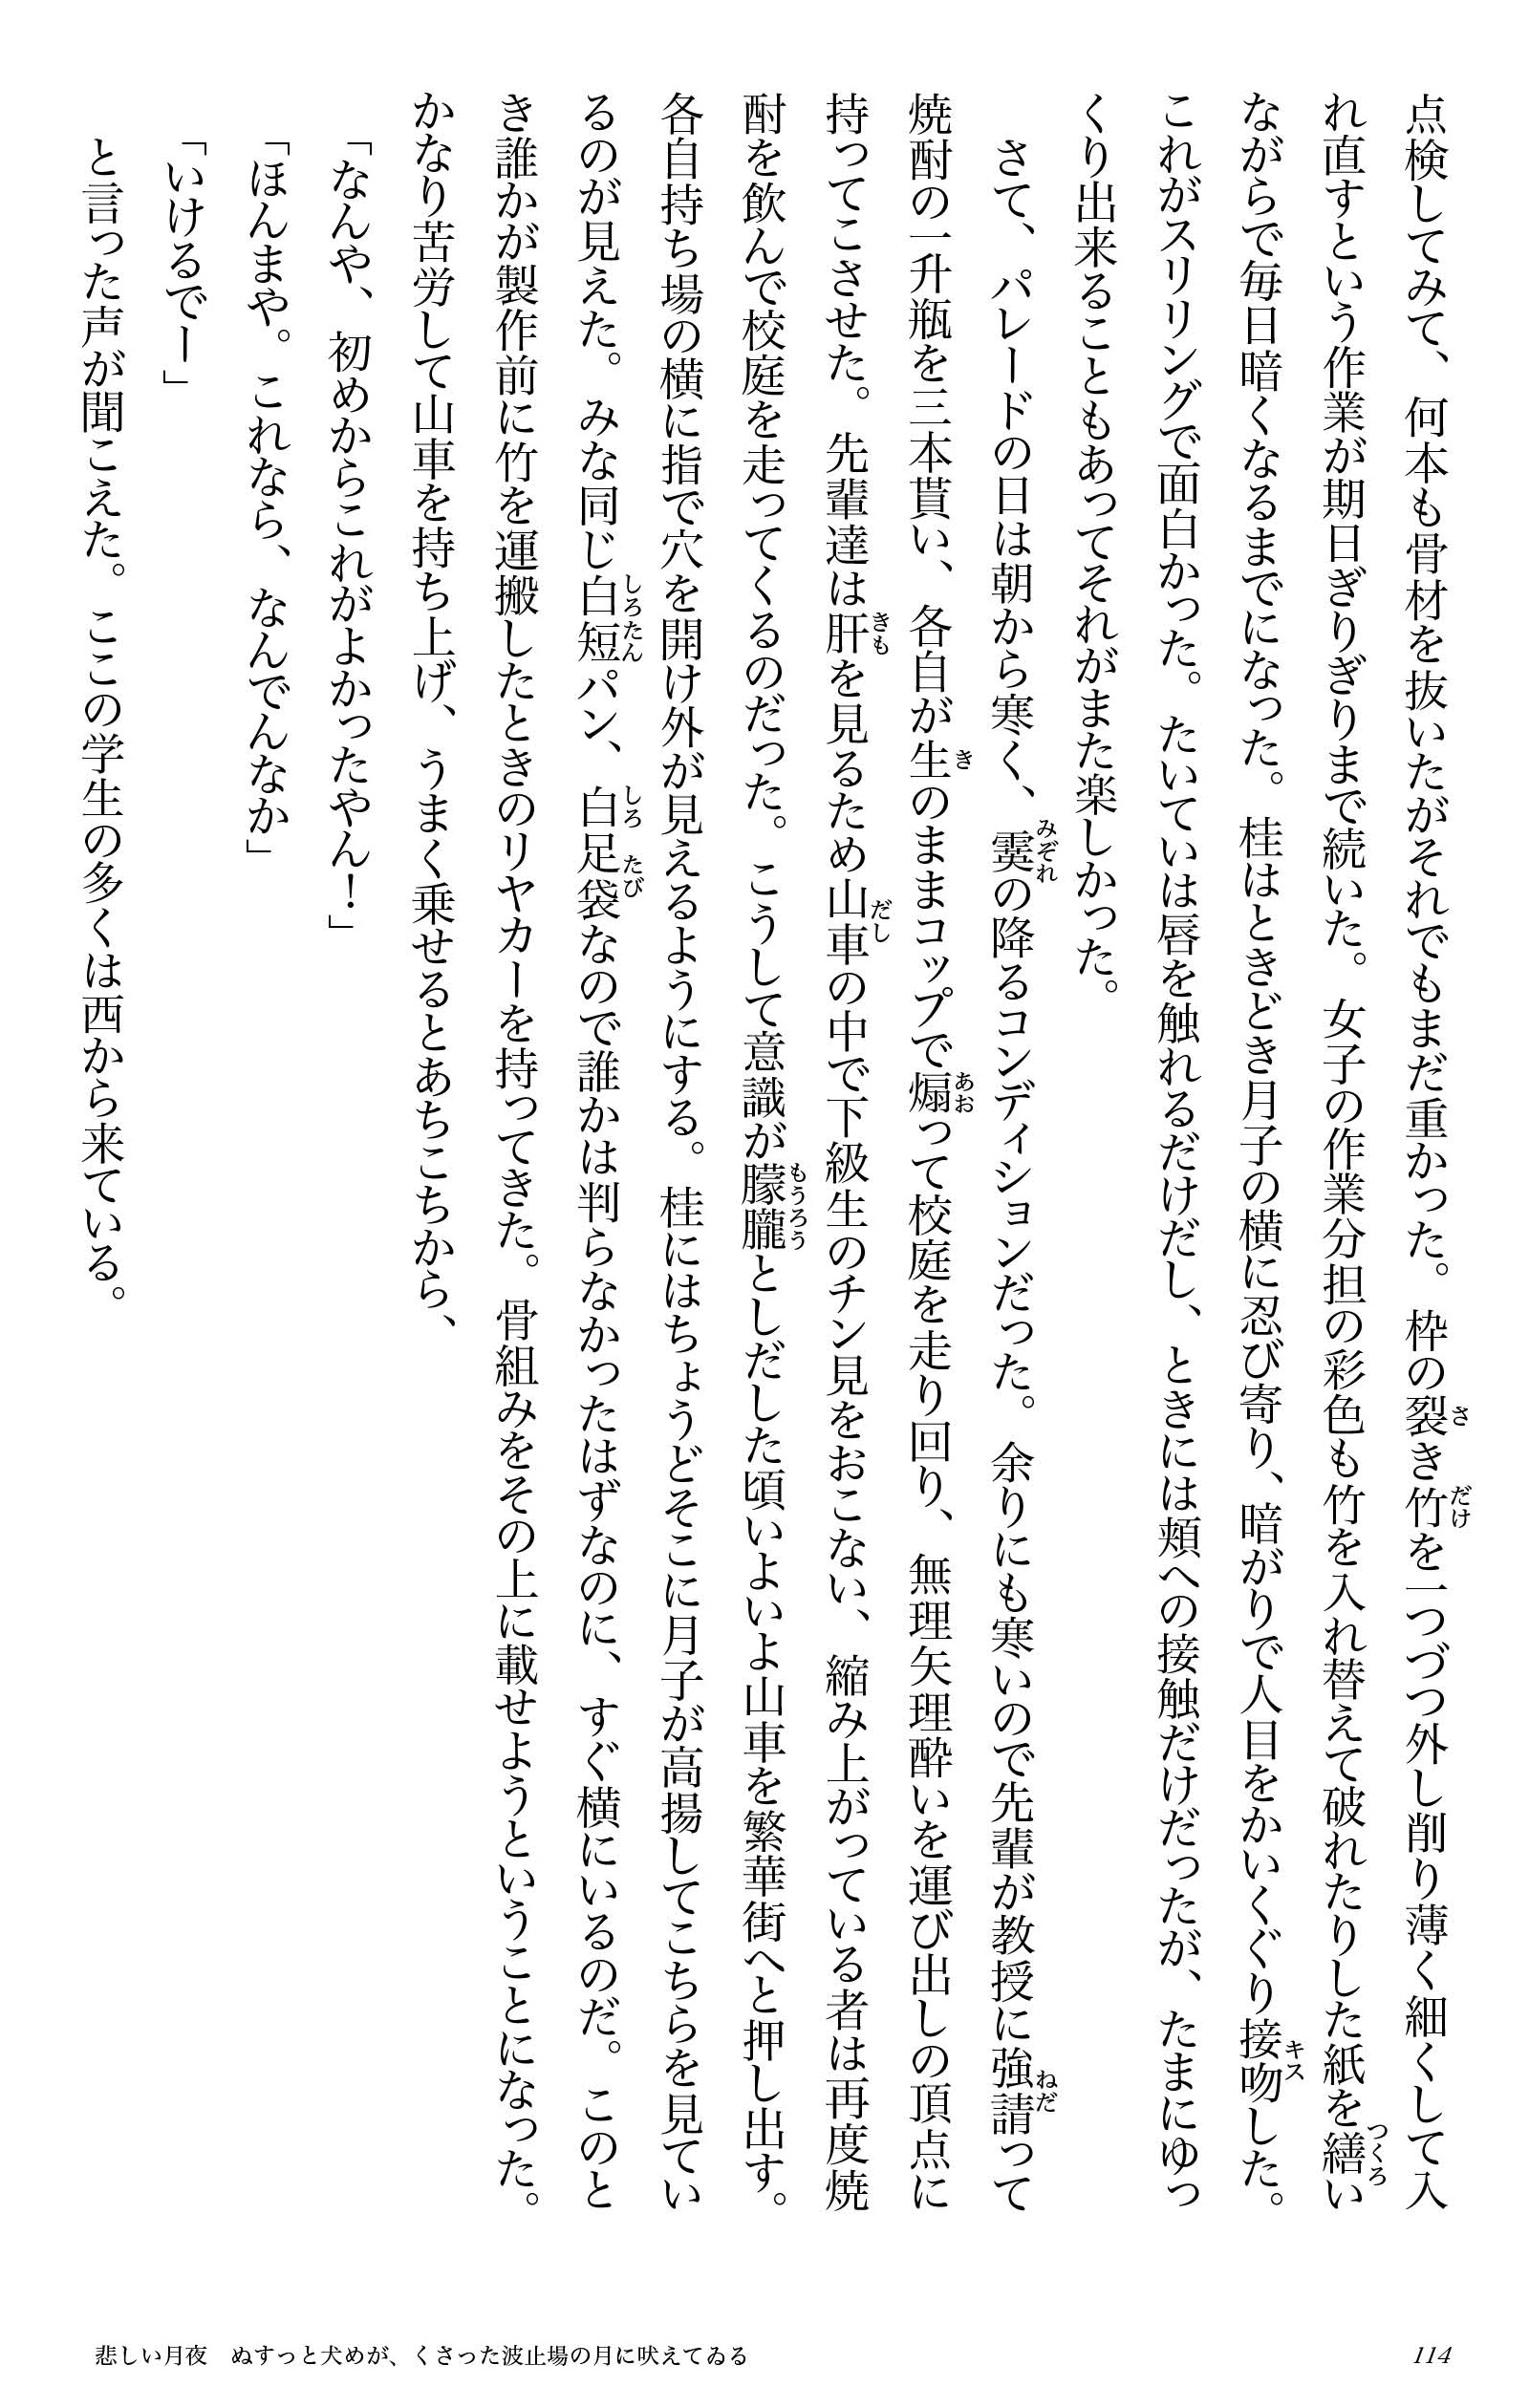 点検してみて、何本も骨材を抜いたがそれでもまだ重かった。枠の裂き竹を一つづつ外し削り薄く細くして入
れ直すという作業が期日ぎりぎりまで続いた。女子の作業分担の彩色も竹を入れ替えて破れたりした紙を繕い
ながらで毎日暗くなるまでになった。桂はときどき月子の横に忍び寄り、暗がりで人目をかいくぐり接吻した。
これがスリリングで面白かった。たいていは唇を触れるだけだし、ときには頬への接触だけだったが、たまにゆっ
くり出来ることもあってそれがまた楽しかった。
さて、パレードの日は朝から寒く、霙の降るコンディションだった。余りにも寒いので先輩が教授に強請って
焼酎の一升瓶を三本貰い、各自が生のままコップで煽って校庭を走り回り、無理矢理酔いを運び出しの頂点に
持ってこさせた。先輩達は肝を見るため山車の中で下級生のチン見をおこない、縮み上がっている者は再度焼
酎を飲んで校庭を走ってくるのだった。こうして意識が朦朧としだした頃いよいよ山車を繁華街へと押し出す。
各自持ち場の横に指で穴を開け外が見えるようにする。桂にはちょうどそこに月子が高揚してこちらを見てい
るのが見えた。みな同じ白短パン、白足袋なので誰かは判らなかったはずなのに、すぐ横にいるのだ。このと
き誰かが製作前に竹を運搬したときのリヤカーを持ってきた。骨組みをその上に載せようということになった。
かなり苦労して山車を持ち上げ、うまく乗せるとあちこちから、
「なんや、初めからこれがよかったやん！」
「ほんまや。これなら、なんでんなか」
「いけるでー」
と言った声が聞こえた。ここの学生の多くは西から来ている。
悲しい月夜　ぬすっと犬めが、くさった波止場の月に吠えてゐる
114